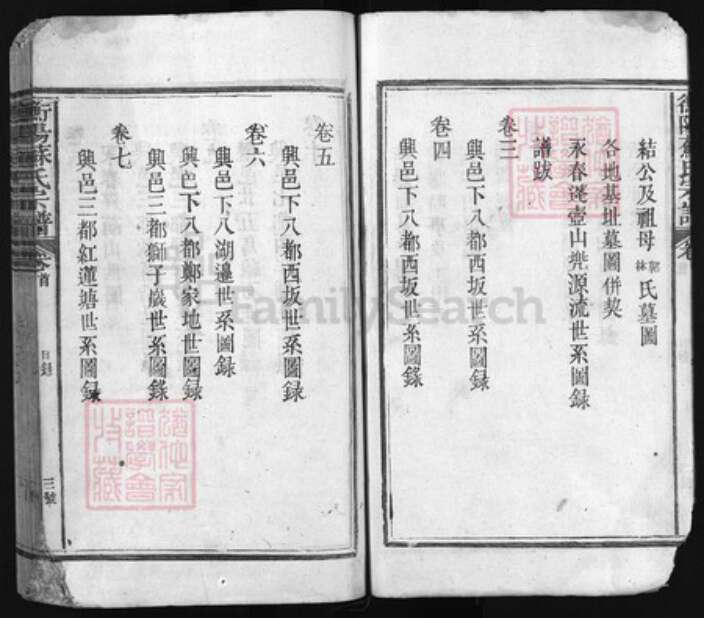 結公及祖母郭林氏墓圖
各地基址墓圖併契
永春蓬壺山兠源流世系圖錄
譜跋
卷三
興邑下八都西坂世系圖録
卷四
興邑下八都西坂世系圖錄
卷五
興邑下八都西坂世系圖録
卷六
興邑下八湖邊世系圖録
興邑下八都鄭家地世圖録
興邑三都獅子巖世系圖錄
卷七
興邑三都紅蓮塘世系圖録
衡陽蘇氏宗譜
卷首
目録
三號
FamilySearch